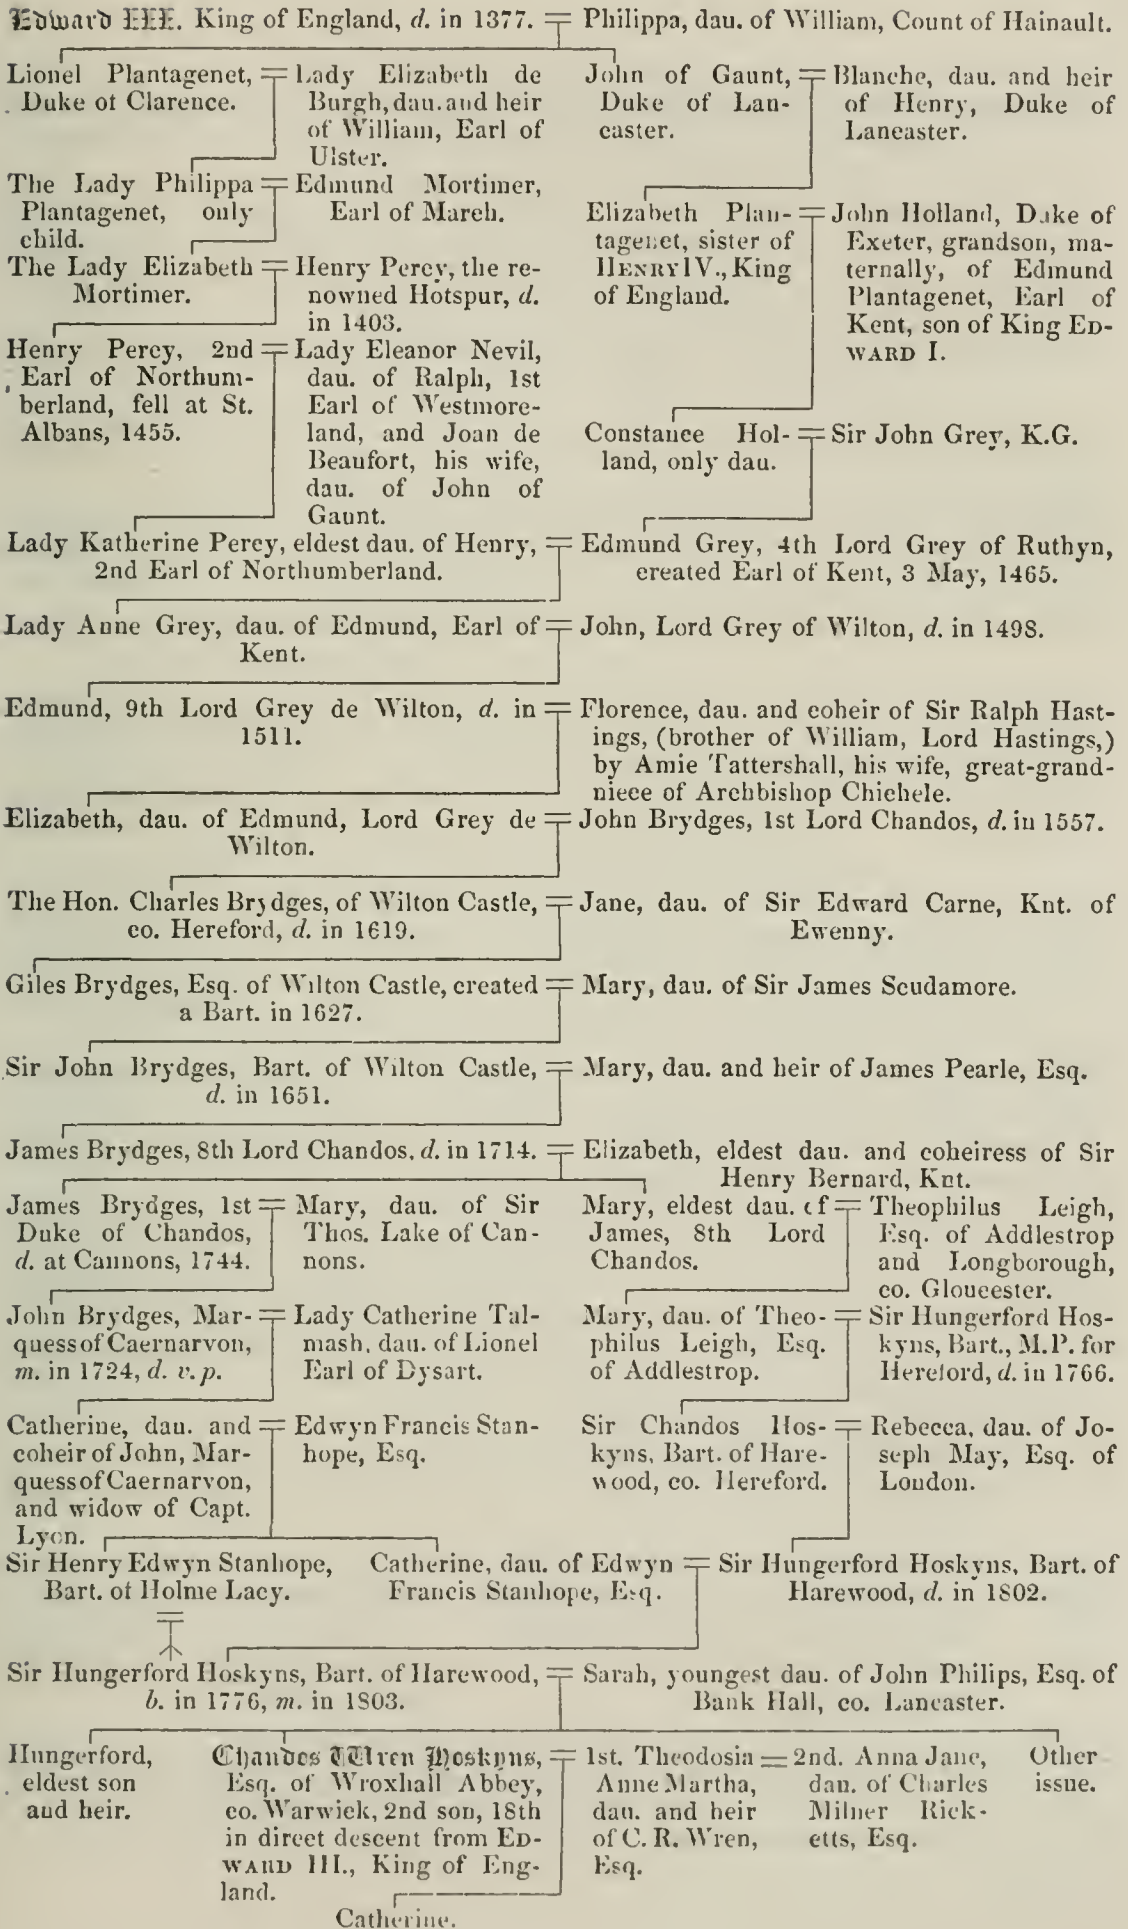 Edward III. King of England, d. in 1377. = Philippa, dau. of William, Count of Hainault.
Lionel Plantagenet,
Duke of Clarence.
= Lady Elizabeth de
Burgh, dau. and heir
of William, Earl of
Ulster.
John of Gaunt,
Duke of Lan-
caster.
= Blanche, dau. and heir
of Henry, Duke of
Lancaster.
The Lady Philippa
Plantagenet, only
child.
= Edmund Mortimer,
Earl of March.
Elizabeth Plan-
tagenet, sister of
HENRY IV., King
of England.
= John Holland, Duke of
Exeter, grandson, ma-
ternally, of Edmund
Plantagenet, Earl of
Kent, son of King ED-
WARD I.
The Lady Elizabeth
Mortimer.
= Henry Percy, the re-
nowned Hotspur, d.
in 1403.
Henry Percy, 2nd
Earl of Northum-
berland, fell at St.
Albans, 1455.
= Lady Eleanor Nevil,
dau. of Ralph, 1st
Earl of Westmore-
land, and Joan de
Beaufort, his wife,
dau. of John of
Gaunt.
Constance Hol-
land, only dau.
= Sir John Grey, K.G.
Lady Katherine Percy, eldest dau. of Henry,
2nd Earl of Northumberland.
= Edmund Grey, 4th Lord Grey of Ruthyn,
created Earl of Kent, 3 May, 1465.
Lady Anne Grey, dau. of Edmund, Earl of
Kent.
= John, Lord Grey of Wilton, d. in 1498.
Edmund, 9th Lord Grey de Wilton, d. in
1511.
= Florence, dau. and coheir of Sir Ralph Hast-
ings, (brother of William, Lord Hastings,)
by Amie Tattershall, his wife, great-grand-
niece of Archbishop Chichele.
Elizabeth, dau. of Edmund, Lord Grey de
Wilton.
= John Brydges, 1st Lord Chandos, d. in 1557.
The Hon. Charles Brydges, of Wilton Castle,
co. Hereford, d. in 1619.
= Jane, dau. of Sir Edward Carne, Knt. of
Ewenny.
Giles Brydges, Esq. of Wilton Castle, created
a Bart. in 1627.
= Mary, dau. of Sir James Scudamore.
Sir John Brydges, Bart. of Wilton Castle,
d. in 1651.
= Mary, dau. and heir of James Pearle, Esq.
James Brydges, 8th Lord Chandos, d. in 1714.
= Elizabeth, eldest dau. and coheiress of Sir
Henry Bernard, Knt.
James Brydges, 1st
Duke of Chandos,
d. at Cannons, 1744.
= Mary, dau. of Sir
Thos. Lake of Can-
nons.
Mary, eldest dau. of
James, 8th Lord
Chandos.
= Theophilus Leigh,
Esq. of Addlestrop
and Longborough,
co. Gloucester.
John Brydges, Mar-
quess of Caernarvon,
m. in 1724, d. v. p.
= Lady Catherine Tal-
mash, dau. of Lionel
Earl of Dysart.
Mary, dau. of Theo-
philus Leigh, Esq.
of Addlestrop.
= Sir Hungerford Hos-
kyns, Bart., M.P. for
Hereford, d. in 1766.
Catherine, dau. and
coheir of John, Mar-
quess of Caernarvon,
and widow of Capt.
Lyon.
= Edwyn Francis Stan-
hope, Esq.
Sir Chandos Hos-
kyns, Bart. of Hare-
wood, co. Hereford.
= Rebecca, dau. of Jo-
seph May, Esq. of
London.
Sir Henry Edwyn Stanhope,
Bart. of Holme Lacy.
Catherine, dau. of Edwyn
Francis Stanhope, Esq.
= Sir Hungerford Hoskyns, Bart. of
Harewood, d. in 1802.
Sir Hungerford Hoskyns, Bart. of Harewood,
b. in 1776, m. in 1803.
= Sarah, youngest dau. of John Philips, Esq. of
Bank Hall, co. Lancaster.
Hungerford,
eldest son
and heir.
Chandos Wren Hoskyns,
Esq. of Wroxhall Abbey,
co. Warwick, 2nd son, 18th
in direct descent from ED-
WARD III., King of Eng-
land.
= 1st. Theodosia
Anne Martha,
dau. and heir
of C. R. Wren,
Esq.
= 2nd. Anna Jane,
dau. of Charles
Milner Rick-
etts, Esq.
Other
issue.
Catherine.